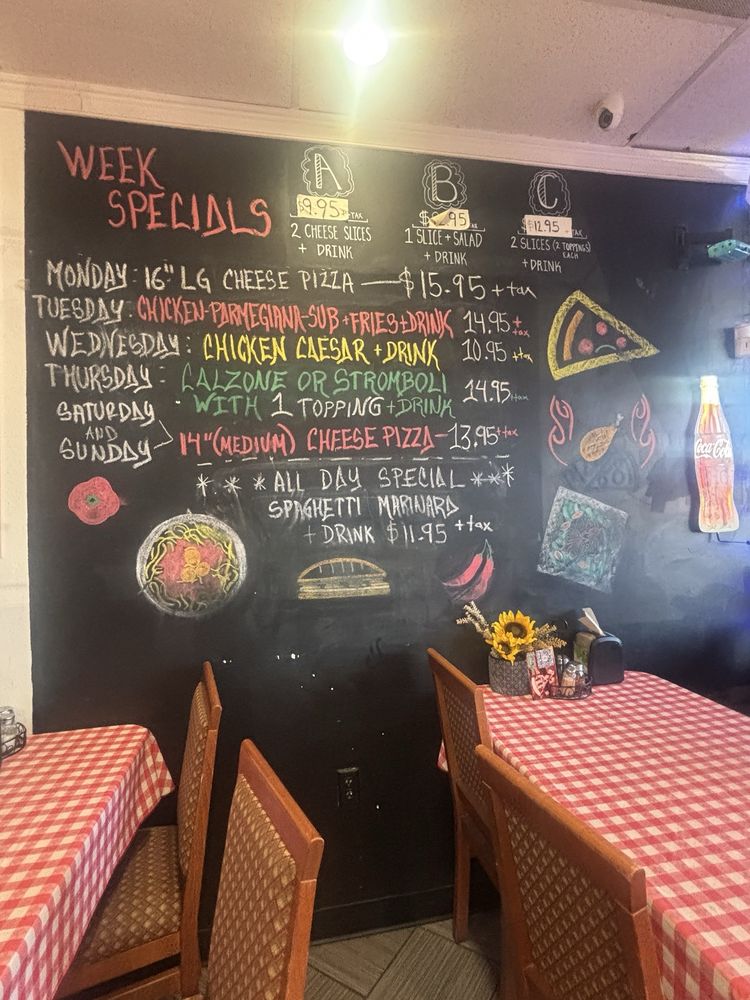 WEEK
SPECIALS
A
$9.95 + TAX
2 CHEESE SLICES
+ DRINK
B
.95
1 SLICE + SALAD
+ DRINK
C
$12.95
2 SLICES (2 TOPPINGS)
EACH
+ DRINK
MONDAY: 16" LG CHEESE PIZZA — $15.95 + tax
TUESDAY: CHICKEN-PARMEGIANA-SUB + FRIES + DRINK 14.95 + tax
WEDNESDAY: CHICKEN CAESAR + DRINK 10.95 + tax
THURSDAY: CALZONE OR STROMBOLI
WITH 1 TOPPING + DRINK 14.95 + tax
SATURDAY
AND
SUNDAY
14" (MEDIUM) CHEESE PIZZA - 13.95 + tax
* * * ALL DAY SPECIAL * * *
SPAGHETTI MARINARA
+ DRINK $11.95 + tax
Coca-Cola